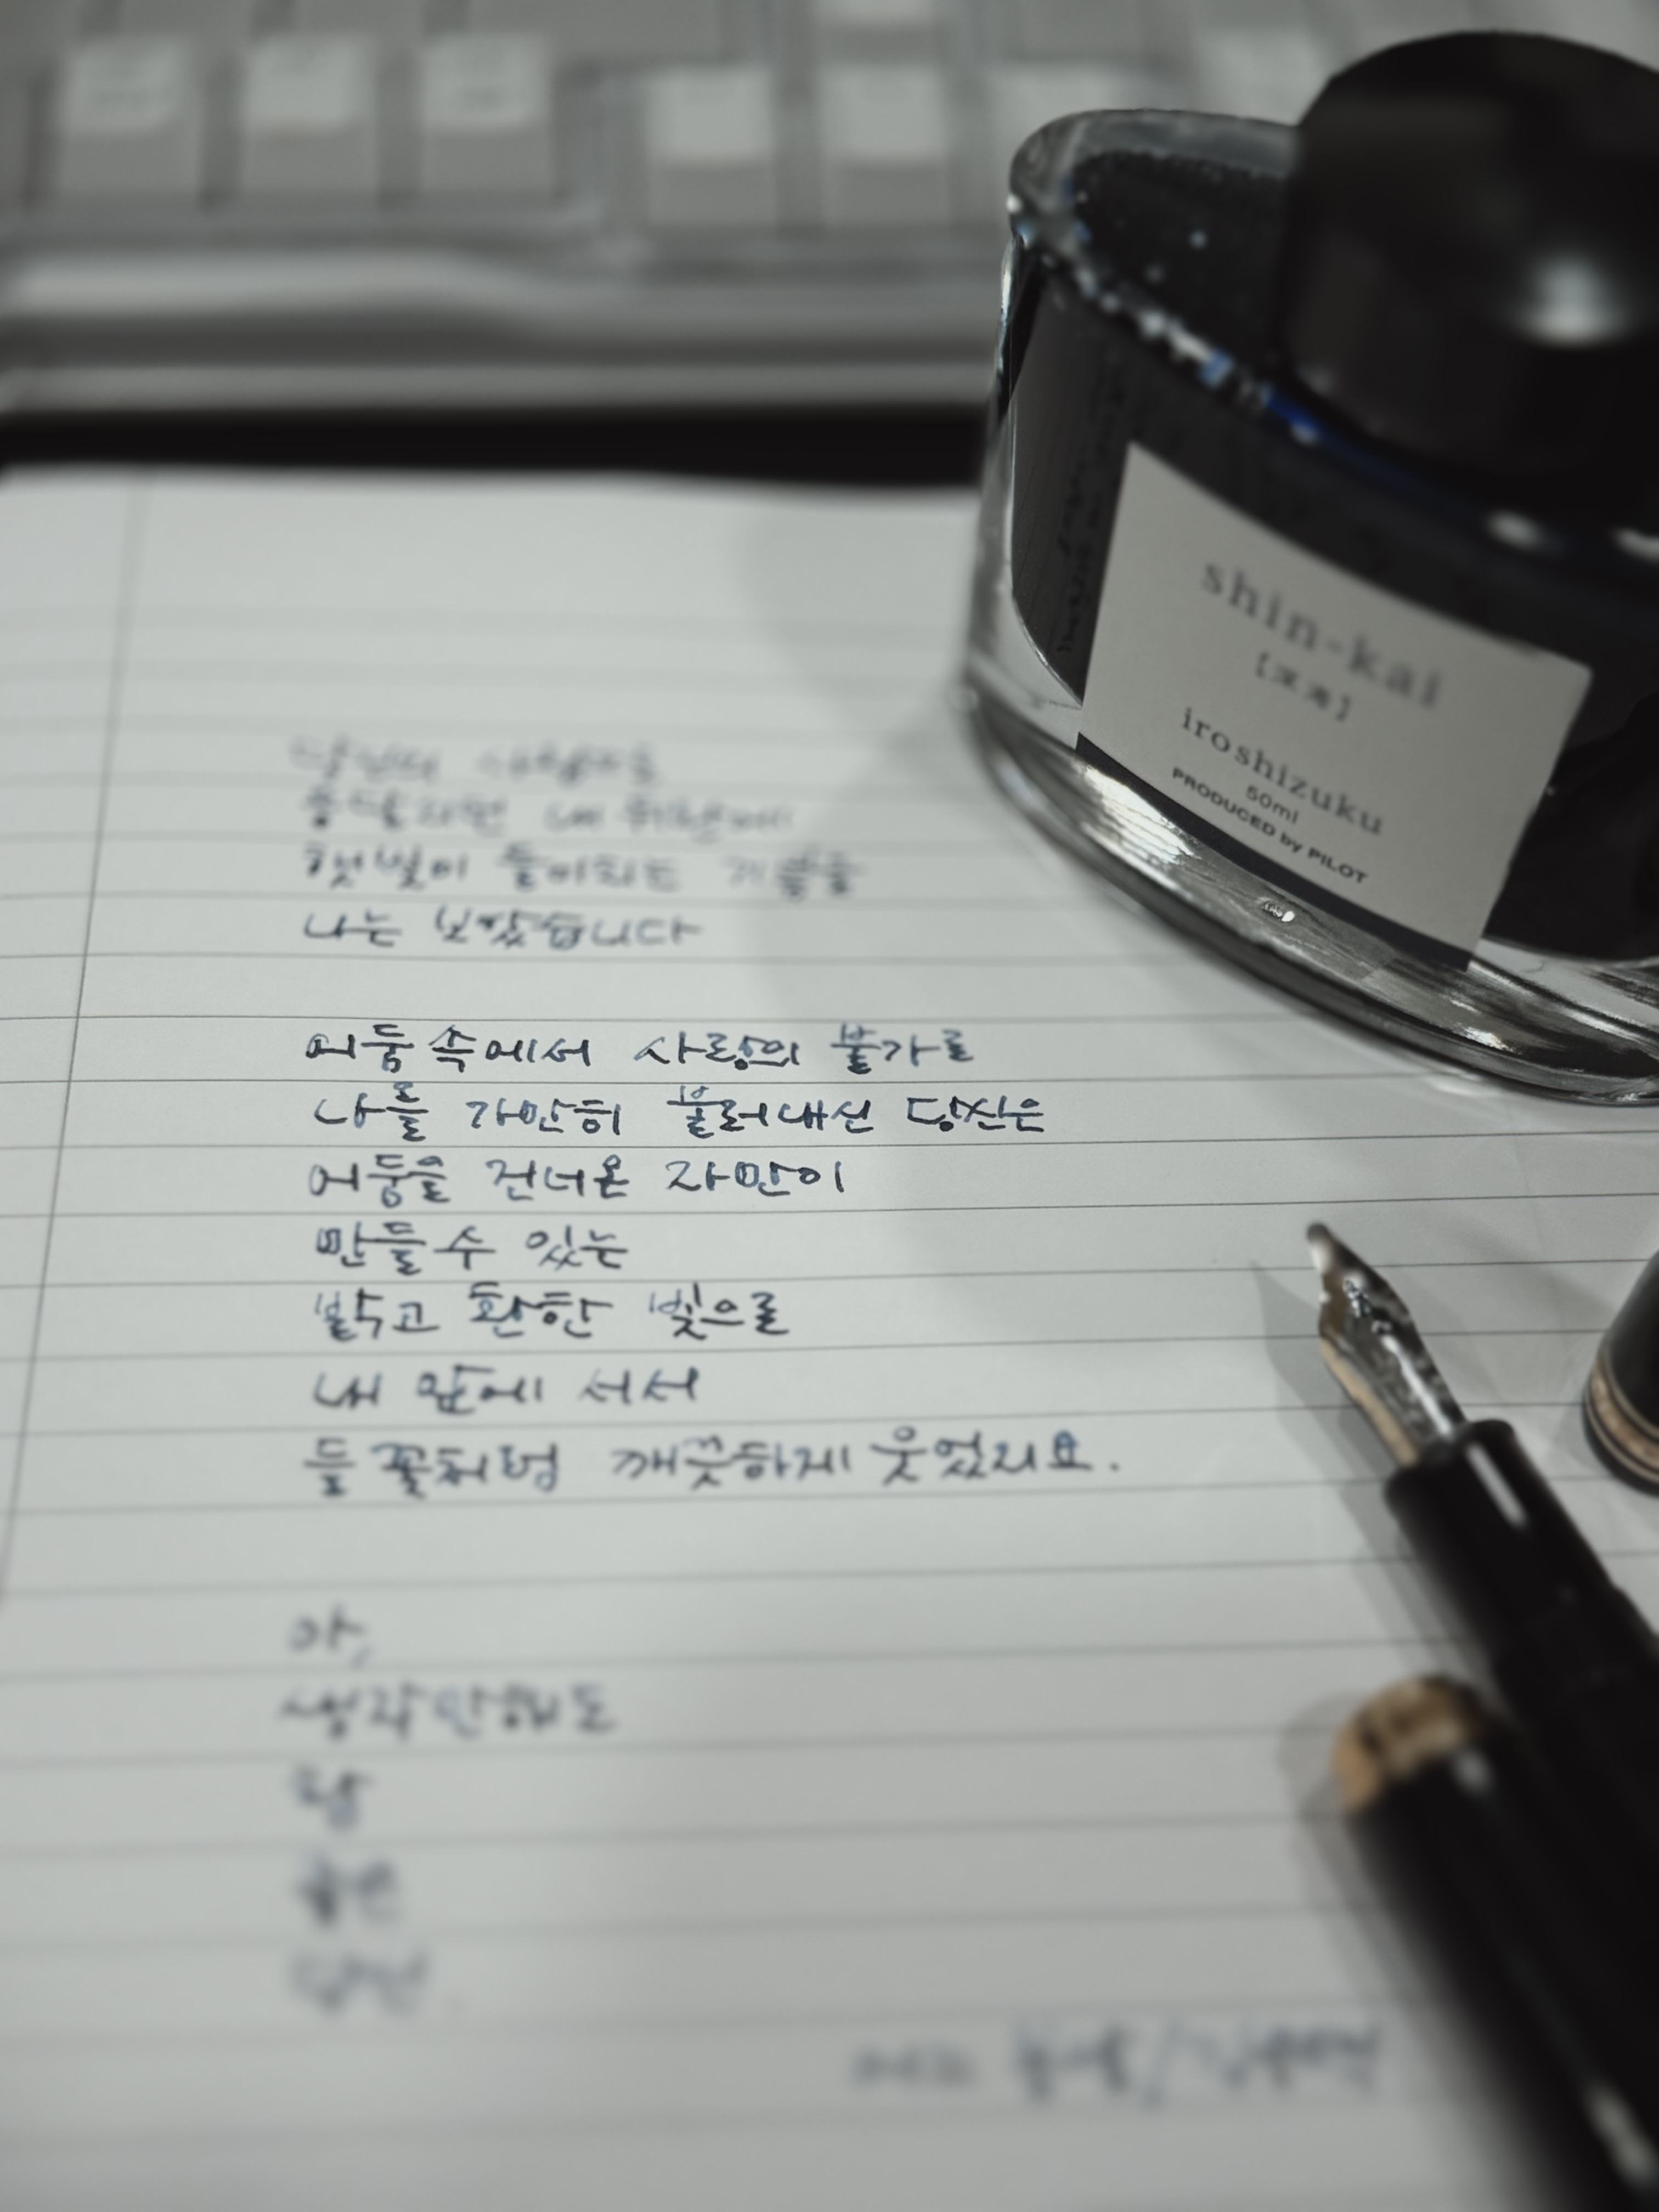 shin-kai
[深海]
iroshizuku
50ml
PRODUCED by PILOT
당신의 사랑으로
응달지던 내 뒤란에
햇빛이 들이치는 기쁨을
나는 보았습니다
어둠속에서 사랑의 불가로
나를 가만히 불러내신 당신은
어둠을 건너온 자만이
만들수 있는
밝고 환한 빛으로
내 앞에 서서
들꽃처럼 깨끗하게 웃었지요.
아,
생각만해도
참
좋은
당신.
어느 봄날/김용택